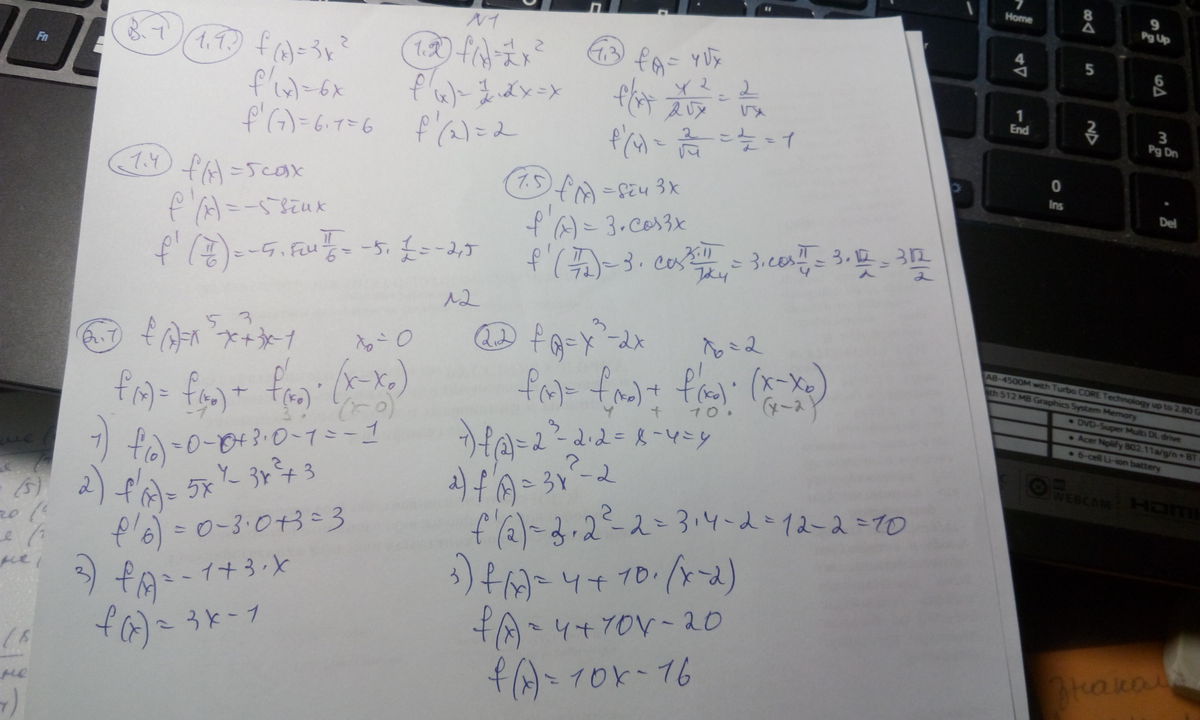 N1
В.1
1.1. f(x)=3x²
f'(x)=6x
f'(1)=6·1=6
1.2 f(x)=1/2x²
f'(x)=1/2·2x=x
f'(2)=2
1.3 f(x)=4√x
f'(x)=4·2/2√x=2/√x
f'(4)=2/√4=2/2=1
1.4 f(x)=5cosx
f'(x)=-5sinx
f'(π/6)=-5·sinπ/6=-5·1/2=-2,5
1.5 f(x)=sin3x
f'(x)=3·cos3x
f'(π/12)=3·cos3·π/12 4=3·cosπ/4=3·√2/2=3√2/2
N2
2.1 f(x)=x⁵-x³+3x-1 x₀=0
f(x)=f(x₀)+f'(x₀)·(x-x₀)
-1 3· (x-0)
1) f(0)=0-0+3·0-1=-1
2) f'(x)=5x⁴-3x²+3
f'(0)=0-3·0+3=3
3) f(x)=-1+3·x
f(x)=3x-1
2.2 f(x)=x³-2x x₀=2
f(x)=f(x₀)+f'(x₀)·(x-x₀)
4 + 10· (x-2)
1) f(2)=2³-2·2=8-4=4
2) f'(x)=3x²-2
f'(2)=3·2²-2=3·4-2=12-2=10
3) f(x)=4+10·(x-2)
f(x)=4+10x-20
f(x)=10x-16
Fn
7
Home
8
9
Pg Up
4
5
6
1
End
2
3
Pg Dn
0
Ins
.
Del
A8-4500M with Turbo CORE Technology up to 2.80
with 512 MB Graphics System Memory
• DVD-Super Multi DL drive
• Acer Nplify 802.11a/g/n + BT
• 6-cell Li-ion battery
WEBCAM
HDMI
знаком